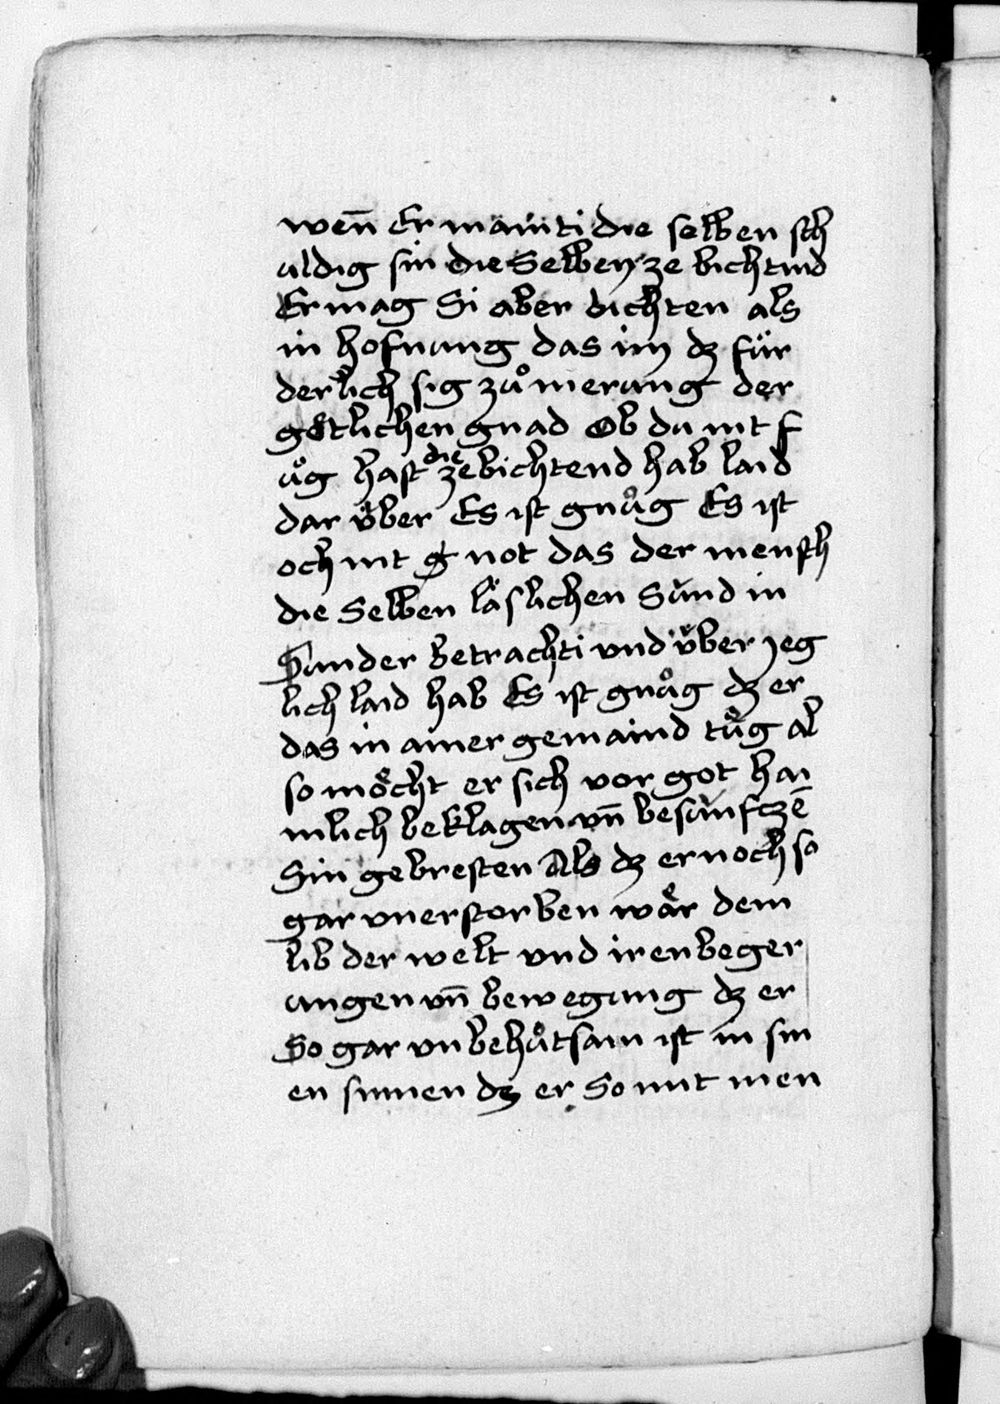 wen̄ Er mainti die selben sch
uldig sin die Selben ze bichtind
Er mag Si aber bichten als
in hofnung das im dz für
derlich sig zuͦ merung der
goͤtlichen gnad Ob du nit f
uͦg hast die ze bichtend hab laid
dar v̈ber Es ist gnuͦg Es ist
och nit not das der mensch
die Selben läslichen Sünd in
Sunder betrachti vnd v̈ber yeg
lich laid hab Es ist gnuͦg dz er
das in ainer gemaind tuͤg al
so moͤcht er sich vor got hai
mlich beklagen vn̄ besünfczē
Sin gebresten Als dz er noch so
gar vnerstorben waͤr dem
lib der welt vnd iren beger
ungen vn̄ bewegung dz er
So gar vnbehuͦtsam ist in sin
en sinnen dz er So nut men